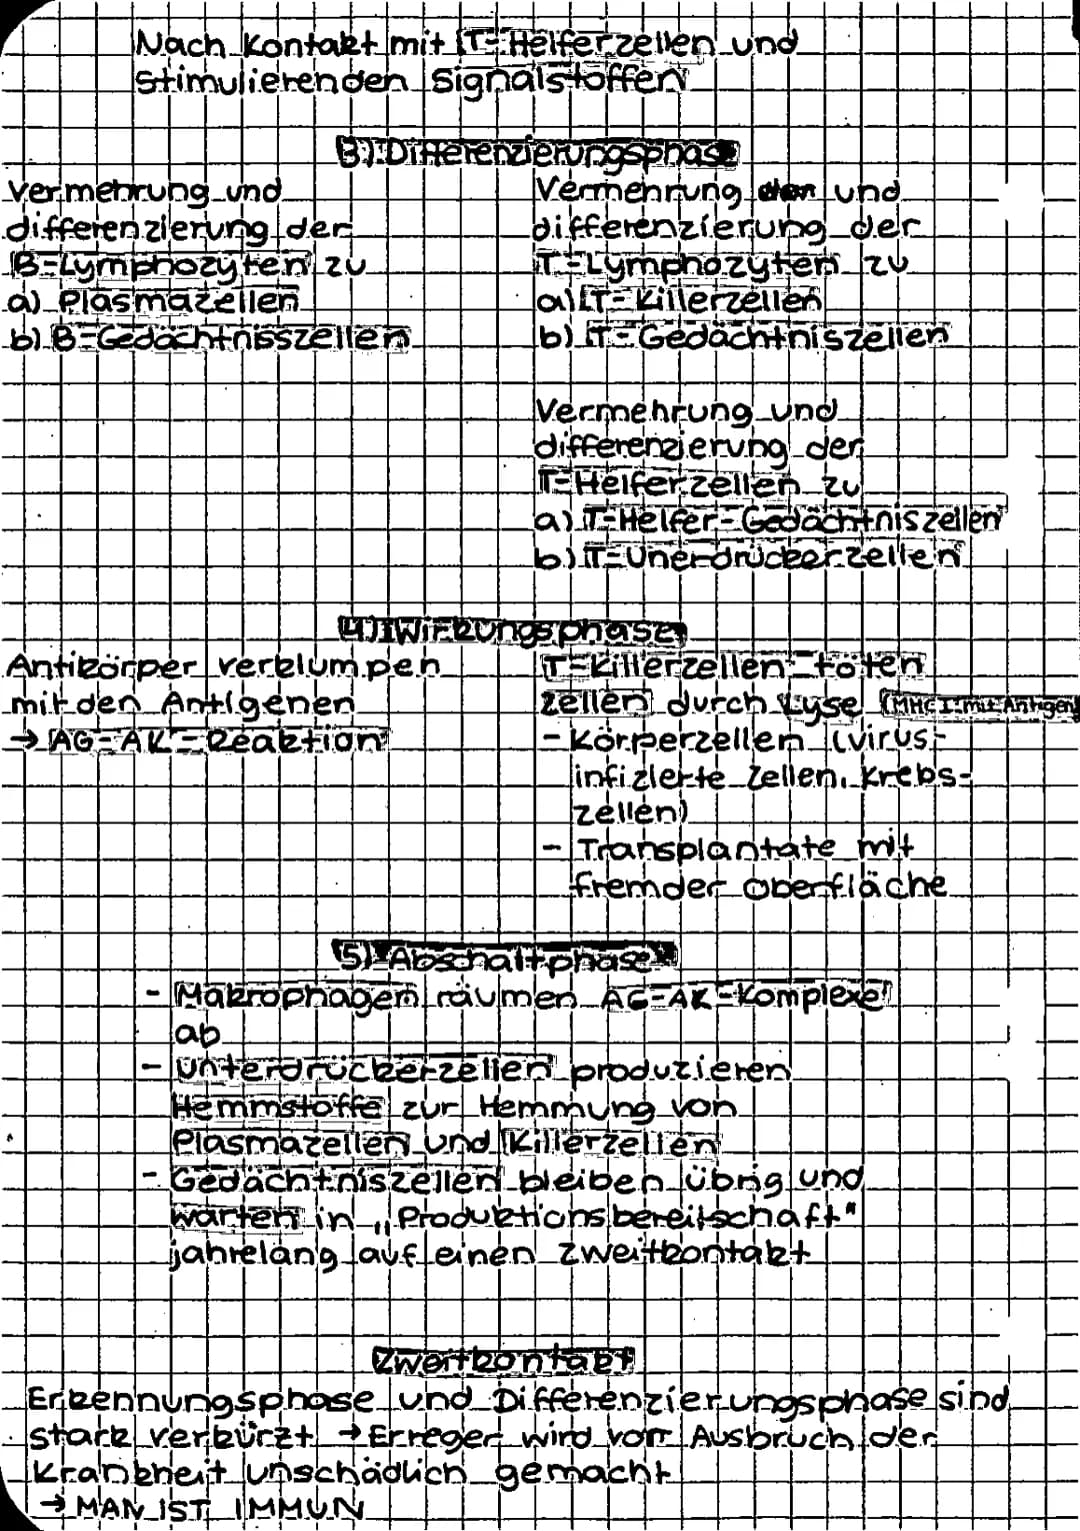 Nach Kontakt mit T-Helferzellen und
stimulierenden Signalstoffen
3) Differenzierungsphase
Vermehrung und
differenzierung der
B-Lymphozyten zu
a) Plasmazellen
b) B-Gedächtnisszellen
Vermehrung und
differenzierung der
T-Lymphozyten zu
a) T-Killerzellen
b) T-Gedächtniszellen
Vermehrung und
differenzierung der
T-Helferzellen zu
a) T-Helfer-Gedächtniszellen
b) T-Unerdrückerzellen
4) Wirkungsphase
Antikörper verklumpen
mit den Antigenen
→ AG-AK-Reaktion
T-Killerzellen töten
Zellen durch Lyse (MHC I mit Antigen)
- Körperzellen (virus-
infizierte Zellen, Krebs-
zellen)
- Transplantate mit
fremder Oberfläche
5) Abschaltphase
- Makrophagen räumen AG-AK-Komplexe
ab
- Unterdrückerzellen produzieren
Hemmstoffe zur Hemmung von
Plasmazellen und Killerzellen
- Gedächtniszellen bleiben übrig und
warten in „Produktionsbereitschaft"
jahrelang auf einen Zweitkontakt
Zweitkontakt
Erkennungsphase und Differenzierungsphase sind
stark verkürzt → Erreger wird vorr Ausbruch der
Krankheit unschädlich gemacht
→ MAN IST IMMUN